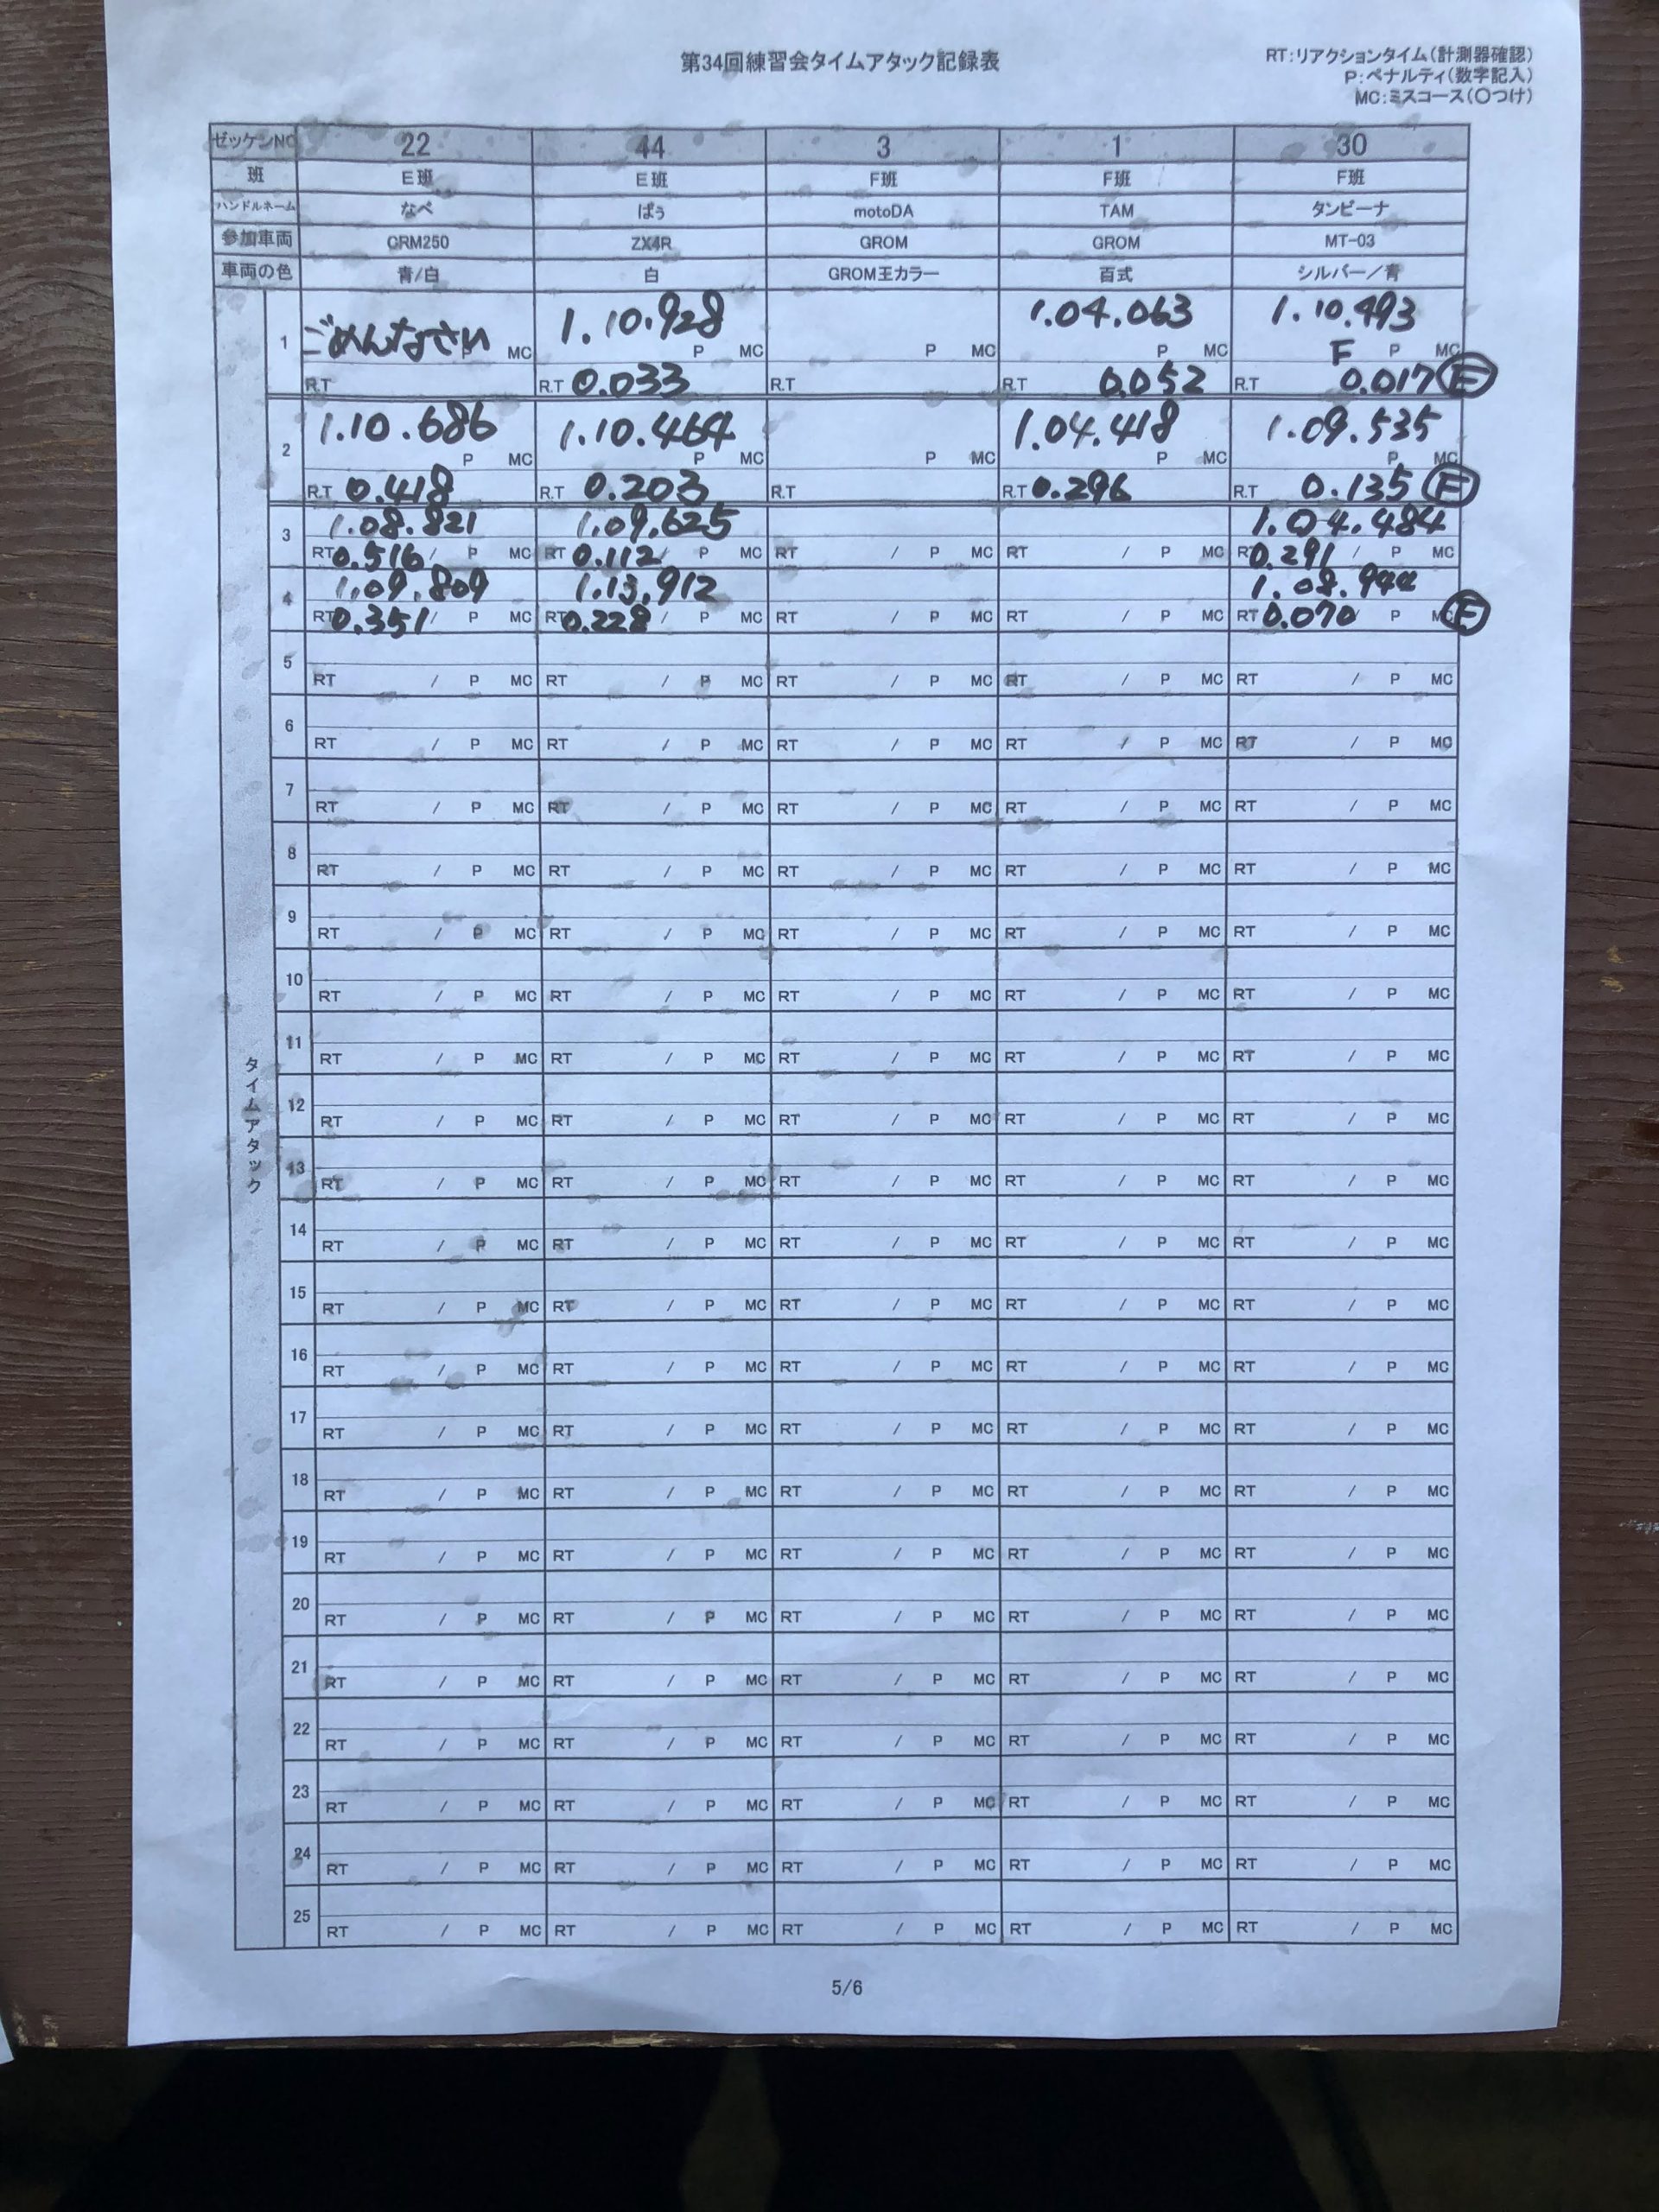 第34回練習会タイムアタック記録表
RT:リアクションタイム(計測器確認)
P:ペナルティ(数字記入)
MC:ミスコース(〇つけ)
ゼッケンNO 22 44 3 1 30
班 E班 E班 F班 F班 F班
ハンドルネーム なべ ぱぅ motoDA TAM タンビーナ
参加車両 CRM250 ZX4R GROM GROM MT-03
車両の色 青/白 白 GROM王カラー 百式 シルバー/青
タイムアタック
1 ごめんなさい 1.10.928 1.04.063 1.10.493
P MC P MC P MC P MC F P MC
R.T R.T 0.033 R.T R.T 0.052 R.T 0.017 F
2 1.10.686 1.10.464 1.04.418 1.09.535
P MC P MC P MC P MC P MC
R.T 0.418 R.T 0.203 R.T R.T 0.296 R.T 0.135 F
3 1.08.821 1.09.625 1.04.484
RT 0.516 / P MC RT 0.112 / P MC RT / P MC RT / P MC RT 0.291 / P MC
4 1.09.809 1.13.912 1.08.944
RT 0.351 / P MC RT 0.228 / P MC RT / P MC RT / P MC RT 0.070 / P MC F
5
RT / P MC RT / P MC RT / P MC RT / P MC RT / P MC
6
RT / P MC RT / P MC RT / P MC RT / P MC RT / P MC
7
RT / P MC RT / P MC RT / P MC RT / P MC RT / P MC
8
RT / P MC RT / P MC RT / P MC RT / P MC RT / P MC
9
RT / P MC RT / P MC RT / P MC RT / P MC RT / P MC
10
RT / P MC RT / P MC RT / P MC RT / P MC RT / P MC
11
RT / P MC RT / P MC RT / P MC RT / P MC RT / P MC
12
RT / P MC RT / P MC RT / P MC RT / P MC RT / P MC
13
RT / P MC RT / P MC RT / P MC RT / P MC RT / P MC
14
RT / P MC RT / P MC RT / P MC RT / P MC RT / P MC
15
RT / P MC RT / P MC RT / P MC RT / P MC RT / P MC
16
RT / P MC RT / P MC RT / P MC RT / P MC RT / P MC
17
RT / P MC RT / P MC RT / P MC RT / P MC RT / P MC
18
RT / P MC RT / P MC RT / P MC RT / P MC RT / P MC
19
RT / P MC RT / P MC RT / P MC RT / P MC RT / P MC
20
RT / P MC RT / P MC RT / P MC RT / P MC RT / P MC
21
RT / P MC RT / P MC RT / P MC RT / P MC RT / P MC
22
RT / P MC RT / P MC RT / P MC RT / P MC RT / P MC
23
RT / P MC RT / P MC RT / P MC RT / P MC RT / P MC
24
RT / P MC RT / P MC RT / P MC RT / P MC RT / P MC
25
RT / P MC RT / P MC RT / P MC RT / P MC RT / P MC
5/6